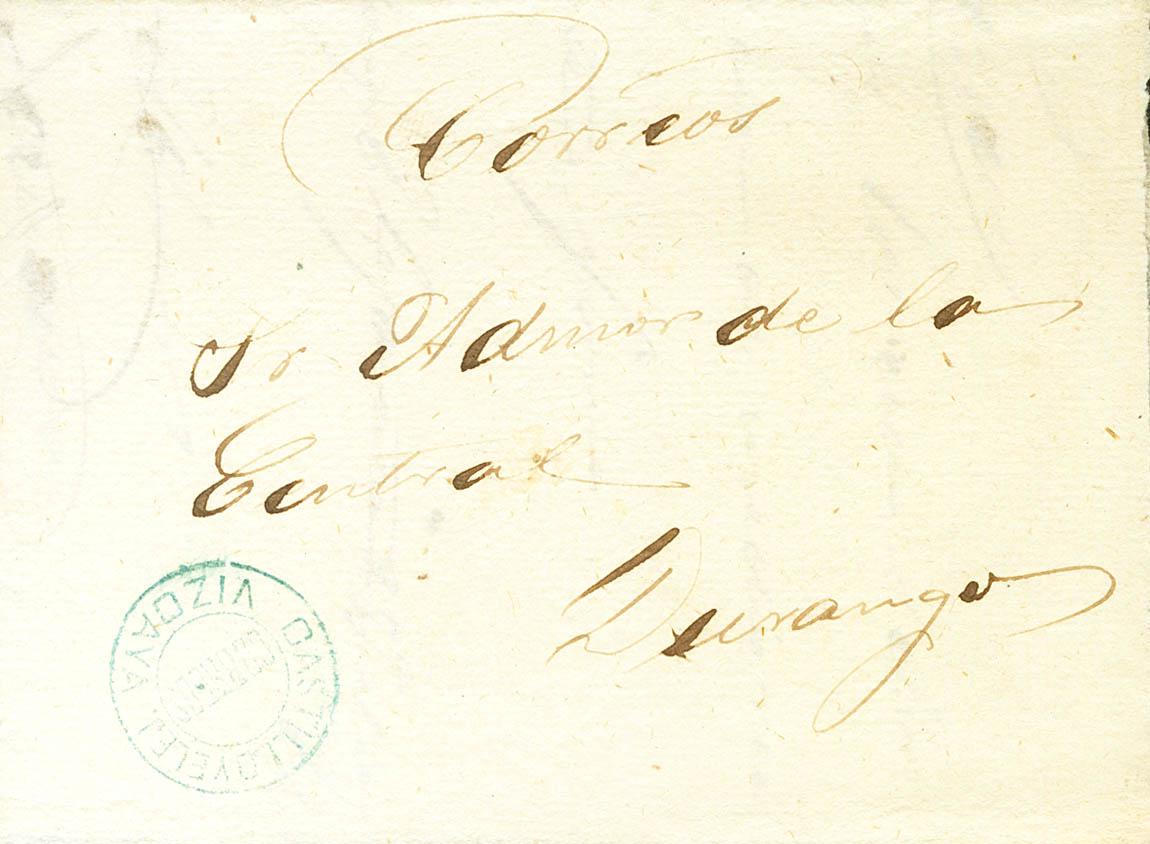 Correos
Sr Admor de la
Central
Durango
CASTILLOYELEJ.
VIZCAYA